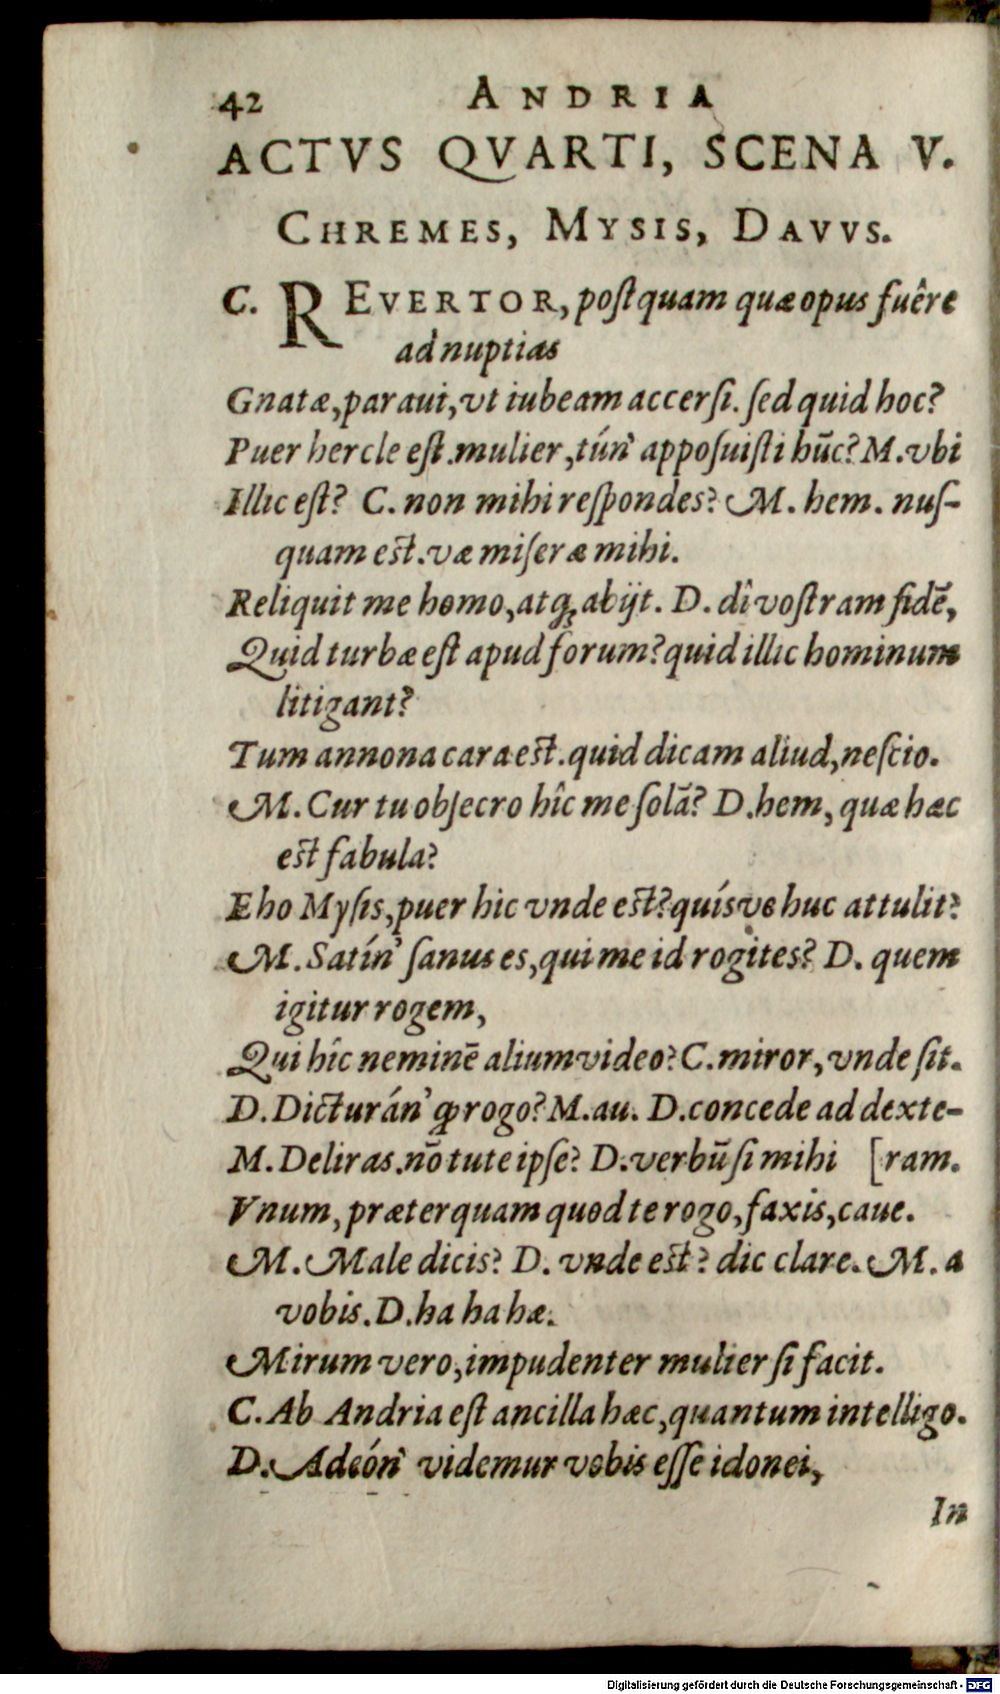 42 ANDRIA
ACTVS QVARTI, SCENA V.
CHREMES, MYSIS, DAVVS.
C. REVERTOR, poſtquam quæ opus fuêre
ad nuptias
Gnatæ, paraui, vt iubeam accerſi. ſed quid hoc?
Puer hercle eſt. mulier, tún' appoſuiſti hūc? M. vbi
Illic eſt? C. non mihi reſpondes? M. hem. nuſ-
quam eſt. væ miſeræ mihi.
Reliquit me homo, atq; abijt. D. dî voſtram fidē,
Quid turbæ eſt apud forum? quid illic hominum
litigant?
Tum annona cara eſt. quid dicam aliud, neſcio.
M. Cur tu obſecro hîc me ſolā? D. hem, quæ hæc
eſt fabula?
Eho Myſis, puer hic vnde eſt? quísve huc attulit?
M. Satín' ſanus es, qui me id rogites? D. quem
igitur rogem,
Qui hîc neminē alium video? C. miror, vnde ſit.
D. Dicturán' ꝙ rogo? M. au. D. concede ad dexte-
M. Deliras. nō tute ipſe? D. verbū ſi mihi [ram.
Vnum, præterquam quod te rogo, faxis, caue.
M. Male dicis? D. vnde eſt? dic clare. M. a
vobis. D. ha ha hæ.
Mirum vero, impudenter mulier ſi facit.
C. Ab Andria eſt ancilla hæc, quantum intelligo.
D. Adeón' videmur vobis eſſe idonei,
In
Digitalisierung gefördert durch die Deutsche Forschungsgemeinschaft - DFG